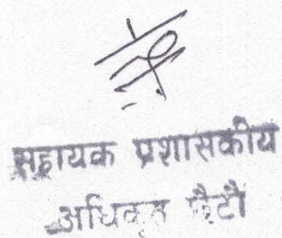 सहायक प्रशासकीय
अधिकृत